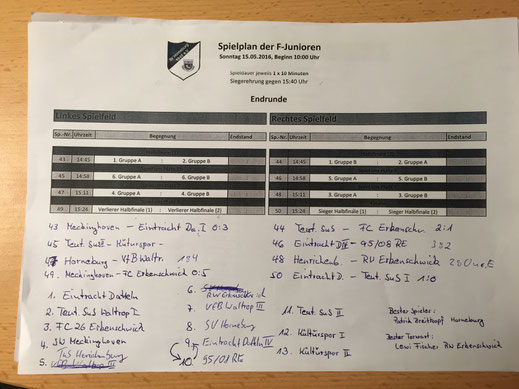 Spielplan der F-Junioren
Sonntag 15.05.2016, Beginn 10:00 Uhr
Spieldauer jeweils 1 x 10 Minuten
Siegerehrung gegen 15:40 Uhr
Endrunde
Linkes Spielfeld
Sp.-Nr. Uhrzeit Begegnung Endstand
43 14:45 1. Gruppe A : 2. Gruppe B
45 14:58 3. Gruppe A : 3. Gruppe B
47 15:11 4. Gruppe A : 4. Gruppe B
49 15:24 Verlierer Halbfinale (1) : Verlierer Halbfinale (2)
Rechtes Spielfeld
Sp.-Nr. Uhrzeit Begegnung Endstand
44 14:45 2. Gruppe A 1. Gruppe B
46 14:58 5. Gruppe A 5. Gruppe B
48 15:11 3. Gruppe A 3. Gruppe B
50 15:24 Sieger Halbfinale (1) Sieger Halbfinale (2)
43 Meckinghoven - Eintracht Da. I 0:3
45 Teut. SuS II - Kültürspor -
47 Horneburg - VfB Waltr.
49. Meckinghoven - FC Erkenschw. 0:5
44 Teut. SuS I - FC Erkenschw. 2:1
46 Eintracht D IV - 95/08 RE
48 Henrichenb. - RW Erkenschwick
50 Eintracht D. - Teut. SuS I 1:0
1. Eintracht Datteln
2. Teut. SuS Waltrop I
3. FC 26 Erkenschwick
4. SW Meckinghoven
5. TuS Henrichenburg
6. RW Erkenschwick
7. VfB Waltrop III
8. SV Horneburg
9. Eintracht Datteln IV
10. 95/01 RE
11. Teut. SuS II
12. Kültürspor I
13. Kültürspor II
Bester Spieler:
Patrick Breitkopf Horneburg
Bester Torwart:
Lewi Fischer RW Erkenschwick